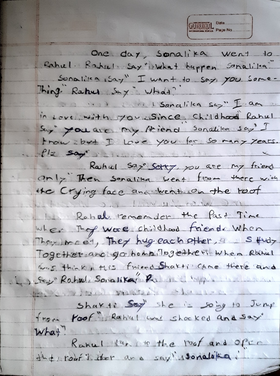 Date
Page No.
One day, Sonalika went to
Rahul. Rahul say "What happen Sonalika"
Sonalika say" I want to say you some-
thing" Rahul say "What?"
Sonalika say" I am
in love with you since childhood Rahul
say "you are my friend" Sonalika say" I
know but I love you for so many years.
Plz say"
Rahul say" Sorry you are my friend
only" Then Sonalika went from there with
the crying face and went on the roof
Rahul remember the Past Time
when They were childhood friends When
They meet, They hug each other Study
Together and go home Together. When Rahul
was think his friend Shakti came there and
say "Rahul Sonalika"
Shakti say she is going to Jump
from roof" Rahul was shocked and say"
What"
Rahul the roof and open
roof door and say" Sonalika